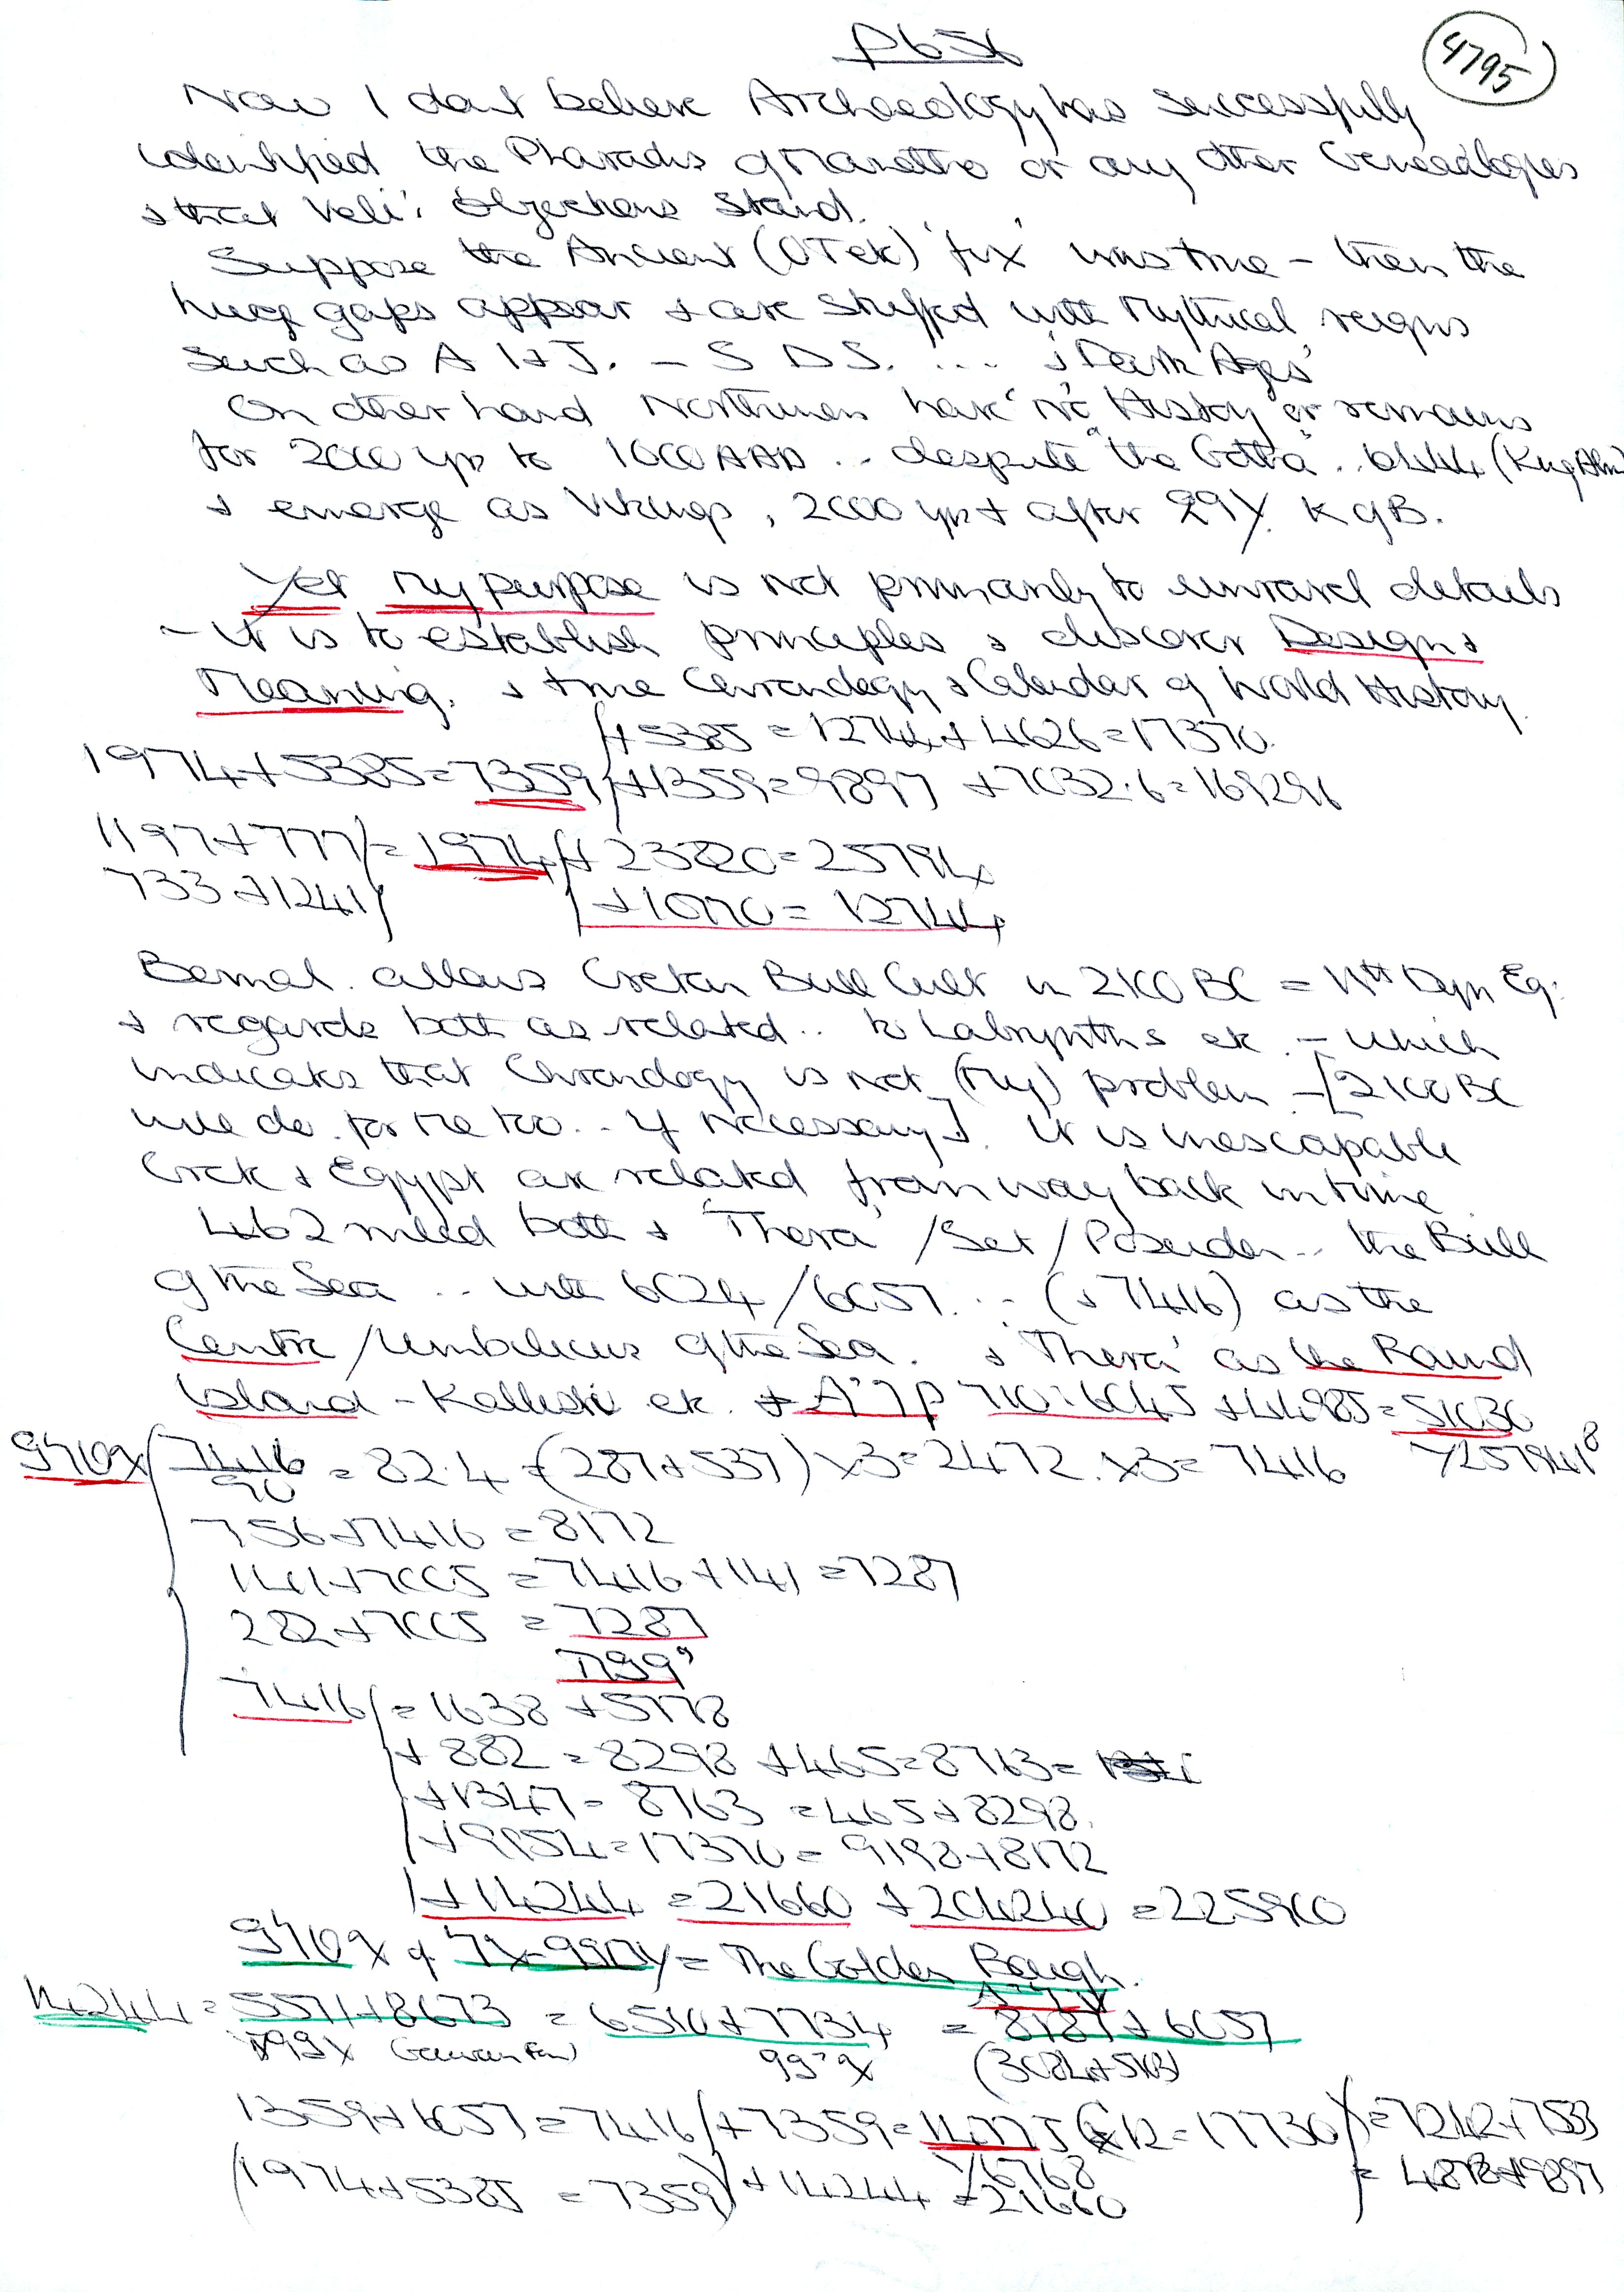 p656
4795
Now I don't believe Archaeology has successfully
identified the Pharaohs of Manetho or any other Genealogies
& that Veli's objections stand.
Suppose the Ancient (OT etc) 'fix' was true – then the
huge gaps appear & are stuffed with Mythical reigns
such as A I + J. – S D S. ... & 'Dark Ages'
On other hand Northmen have 'no' History or remains
for 2000 yrs to 1000 AAD .. despite "the Gotha" ..
& emerge as Vikings, 2000 yrs + after K of B.
Yet My purpose is not primarily to unravel details
– it is to establish principles & discover Design &
Meaning. & true Chronology & Calendar of World History.
+5385 = 12744 + 4626 = 17370.
1974+5385=7359 +1359=9897 +7032.6=169296
1197+777 = 1974 + 23820=25794
733+1241 +10770= 12744
Bernal allows Cretan Bull Cult in 2100 BC = 11th Dyn Eg.
& regards both as related .. to Labrynths etc. – which
indicates that Chronology is not (My) problem – [2100 BC
will do for me too .. if necessary]. It is inescapable
Crete & Egypt are related from way back in time
462 meld both & 'Thera' / Set / Poseidon .. the Bull
of the Sea .. with 6024/6057. .. (& 7416) as the
Centre / Umbilicus of the Sea. & 'Thera' as the Round
Island – Kalliste etc. 710=6045 +44985=51030
9710x 7416/90 = 82.4 (287+537) x3=2472 x3= 7416
756+7416 = 8172
141+7005 = 7416+141 =7287
282+7005 = 7287
7416 = 1638 +5778
+ 882 = 8298 +465=8763=
+1347= 8763 =465+8298
+9954=17370= 9198+8172
+14244 =21660 +204240 =225900
= The Golden Bough.
14244 = 5571+8673 = 6510+7734 = 8187+6057
(3084+5103)
1359+6057=7416 +7359=14775 12=17730 =7242+7533
= 4878+9897
(1974+5385 =7359) +14244 =21660